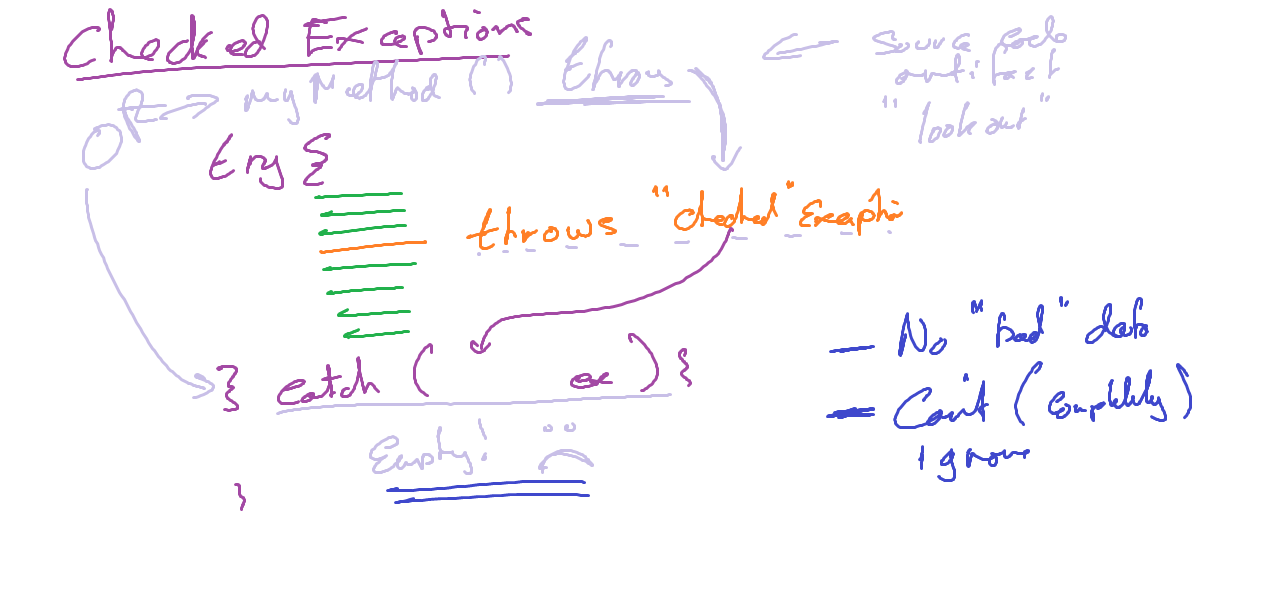 Checked Exceptions
or
myMethod () throws
← source code
artifact
"look out"
try {
throws "checked" Exception
} catch ( ex ) {
Empty!
}
- No "bad" data
- Can't (completely)
ignore